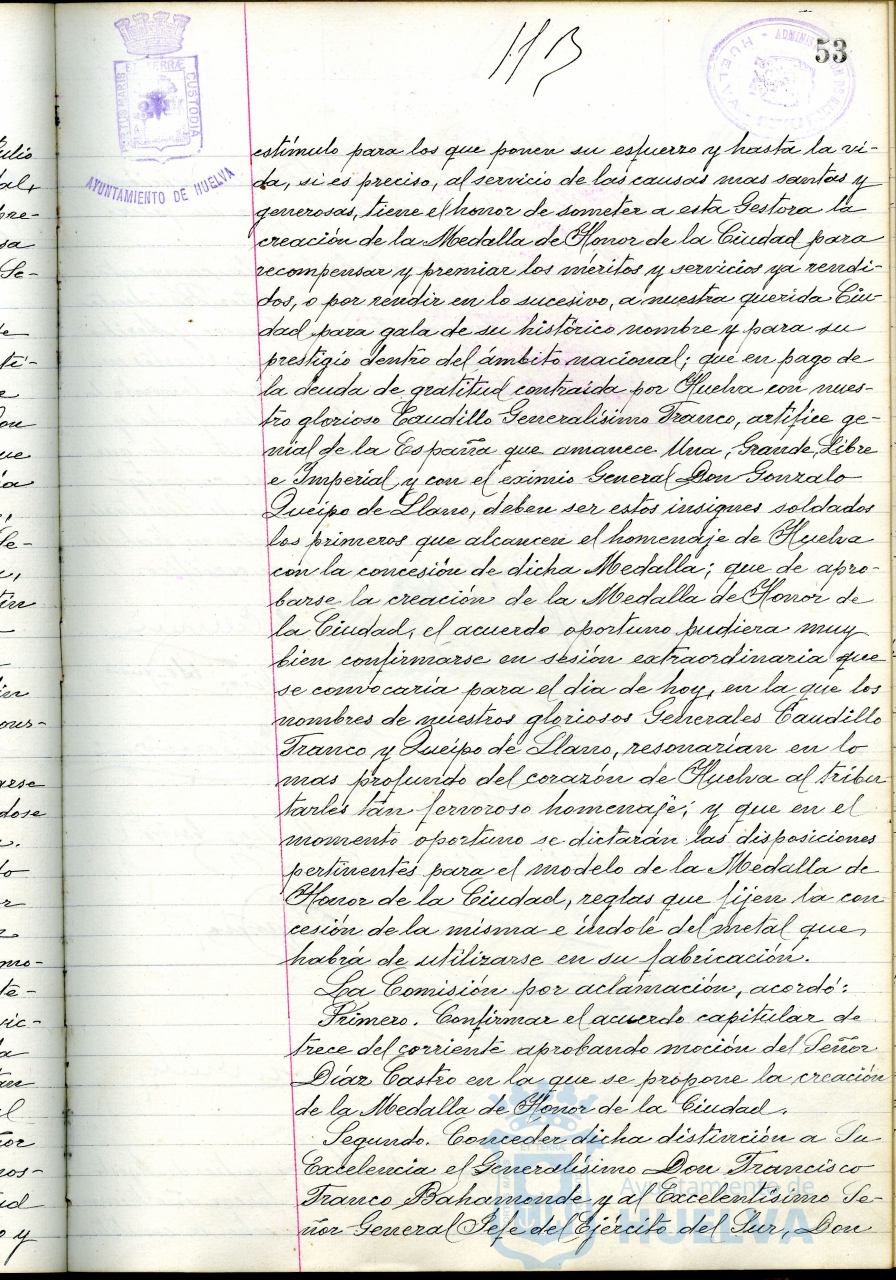 113
53
PORTUS MARIS ET TERRÆ CUSTODIA
AYUNTAMIENTO DE HUELVA
estímulo para los que ponen su esfuerzo y hasta la vi-
da, si es preciso, al servicio de las causas mas santas y
generosas, tiene el honor de someter a esta Gestora la
creación de la Medalla de Honor de la Ciudad para
recompensar y premiar los méritos y servicios ya rendi-
dos, o por rendir en lo sucesivo, a nuestra querida Ciu-
dad para gala de su histórico nombre y para su
prestigio dentro del ámbito nacional; que en pago de
la deuda de gratitud contraída por Huelva con nues-
tro glorioso Caudillo Generalísimo Franco, artífice ge-
nial de la España que amanece Una, Grande, Libre
e Imperial y con el eximio General Don Gonzalo
Queipo de Llano, deben ser estos insignes soldados
los primeros que alcancen el homenaje de Huelva
con la concesión de dicha Medalla; que de apro-
barse la creación de la Medalla de Honor de
la Ciudad, el acuerdo oportuno pudiera muy
bien confirmarse en sesión extraordinaria que
se convocaría para el dia de hoy, en la que los
nombres de nuestros gloriosos Generales Caudillo
Franco y Queipo de Llano, resonarían en lo
mas profundo del corazón de Huelva al tribu-
tarles tán fervoroso homenaje; y que en el
momento oportuno se dictarán las disposiciones
pertinentes para el modelo de la Medalla de
Honor de la Ciudad, reglas que fijen la con
cesión de la misma e índole del metal que
habrá de utilizarse en su fabricación.
La Comisión por aclamación, acordó:
Primero. Confirmar el acuerdo capitular de
trece del corriente aprobando moción del Señor
Díaz Castro en la que se propone la creación
de la Medalla de Honor de la Ciudad.
Segundo. Conceder dicha distinción a Su
Excelencia el Generalísimo Don Francisco
Franco Bahamonde y al Excelentísimo Se-
ñor General Jefe del Ejército del Sur, Don
Ayuntamiento de
HUELVA